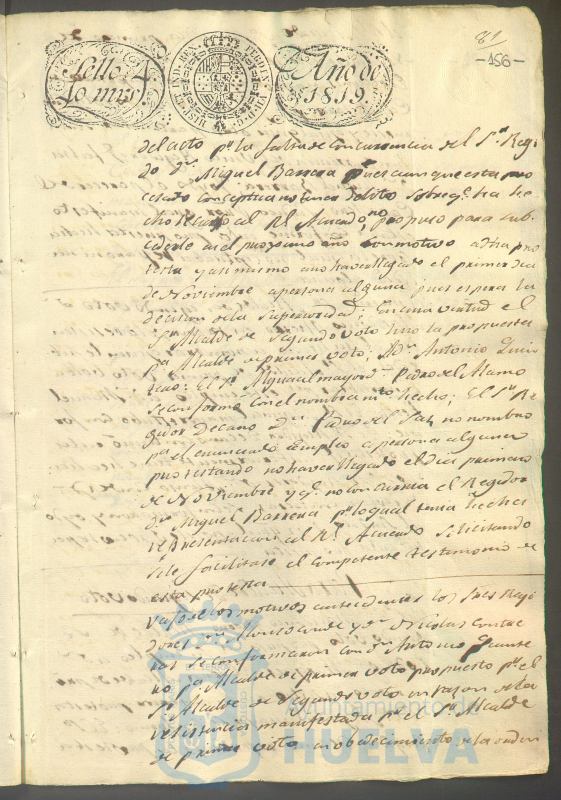 81
-156-
Sello 4º
40 mrs.
HISP. ET IND. REX. FERDIN. VII. D. G.
Año de
1819.
del acto pr. la falta de concurrencia del Sr. Regi
dor Dn. Miguel Barrera pues aunque esta pro
cesado conceptua no tiene delito sobre q. ha he
cho recurso al Rl. Acuerdo, no propuso para sub-
cederle en el proximo año con motivo a dha pro
testa y asi mismo a no haver llegado el primer dia
de Noviembre a persona alguna pues espera la
decision de la Superioridad; En cuia virtud el
Sr. Alcalde de segundo voto hizo la propuesta
pa. Alcalde de primer voto; a Dn. Antonio
El Sr. Alguacil mayor Dn. Pedro del Alamo
se conformó con el nombramto. hecho; El Sr. Re
gidor Decano Dn. Pedro del Paz no nombro
pa. el enunciado Empleo a persona alguna
protestando no haver llegado el dia primero
de Noviembre y q. no concurria el Regidor
Dn. Miguel Barrera pr. lo qual tenia hechas
representacion al Rl. Acuerdo solicitando
se le facilitase el competente testimonio de
esta protesta
los motivos antecedentes los Sres. Regi
dores Dn. y Dn. Nicolas Contre
ras se conformaron con Dn. Antonio
pa. Alcalde de primer voto propuesto pr. el
Sr. Alcalde de Segundo voto en razon de la
resistencia manifestada pr. el Sr. Alcalde
de primer voto en obedecimiento de la orden
Ayuntamiento de
HUELVA